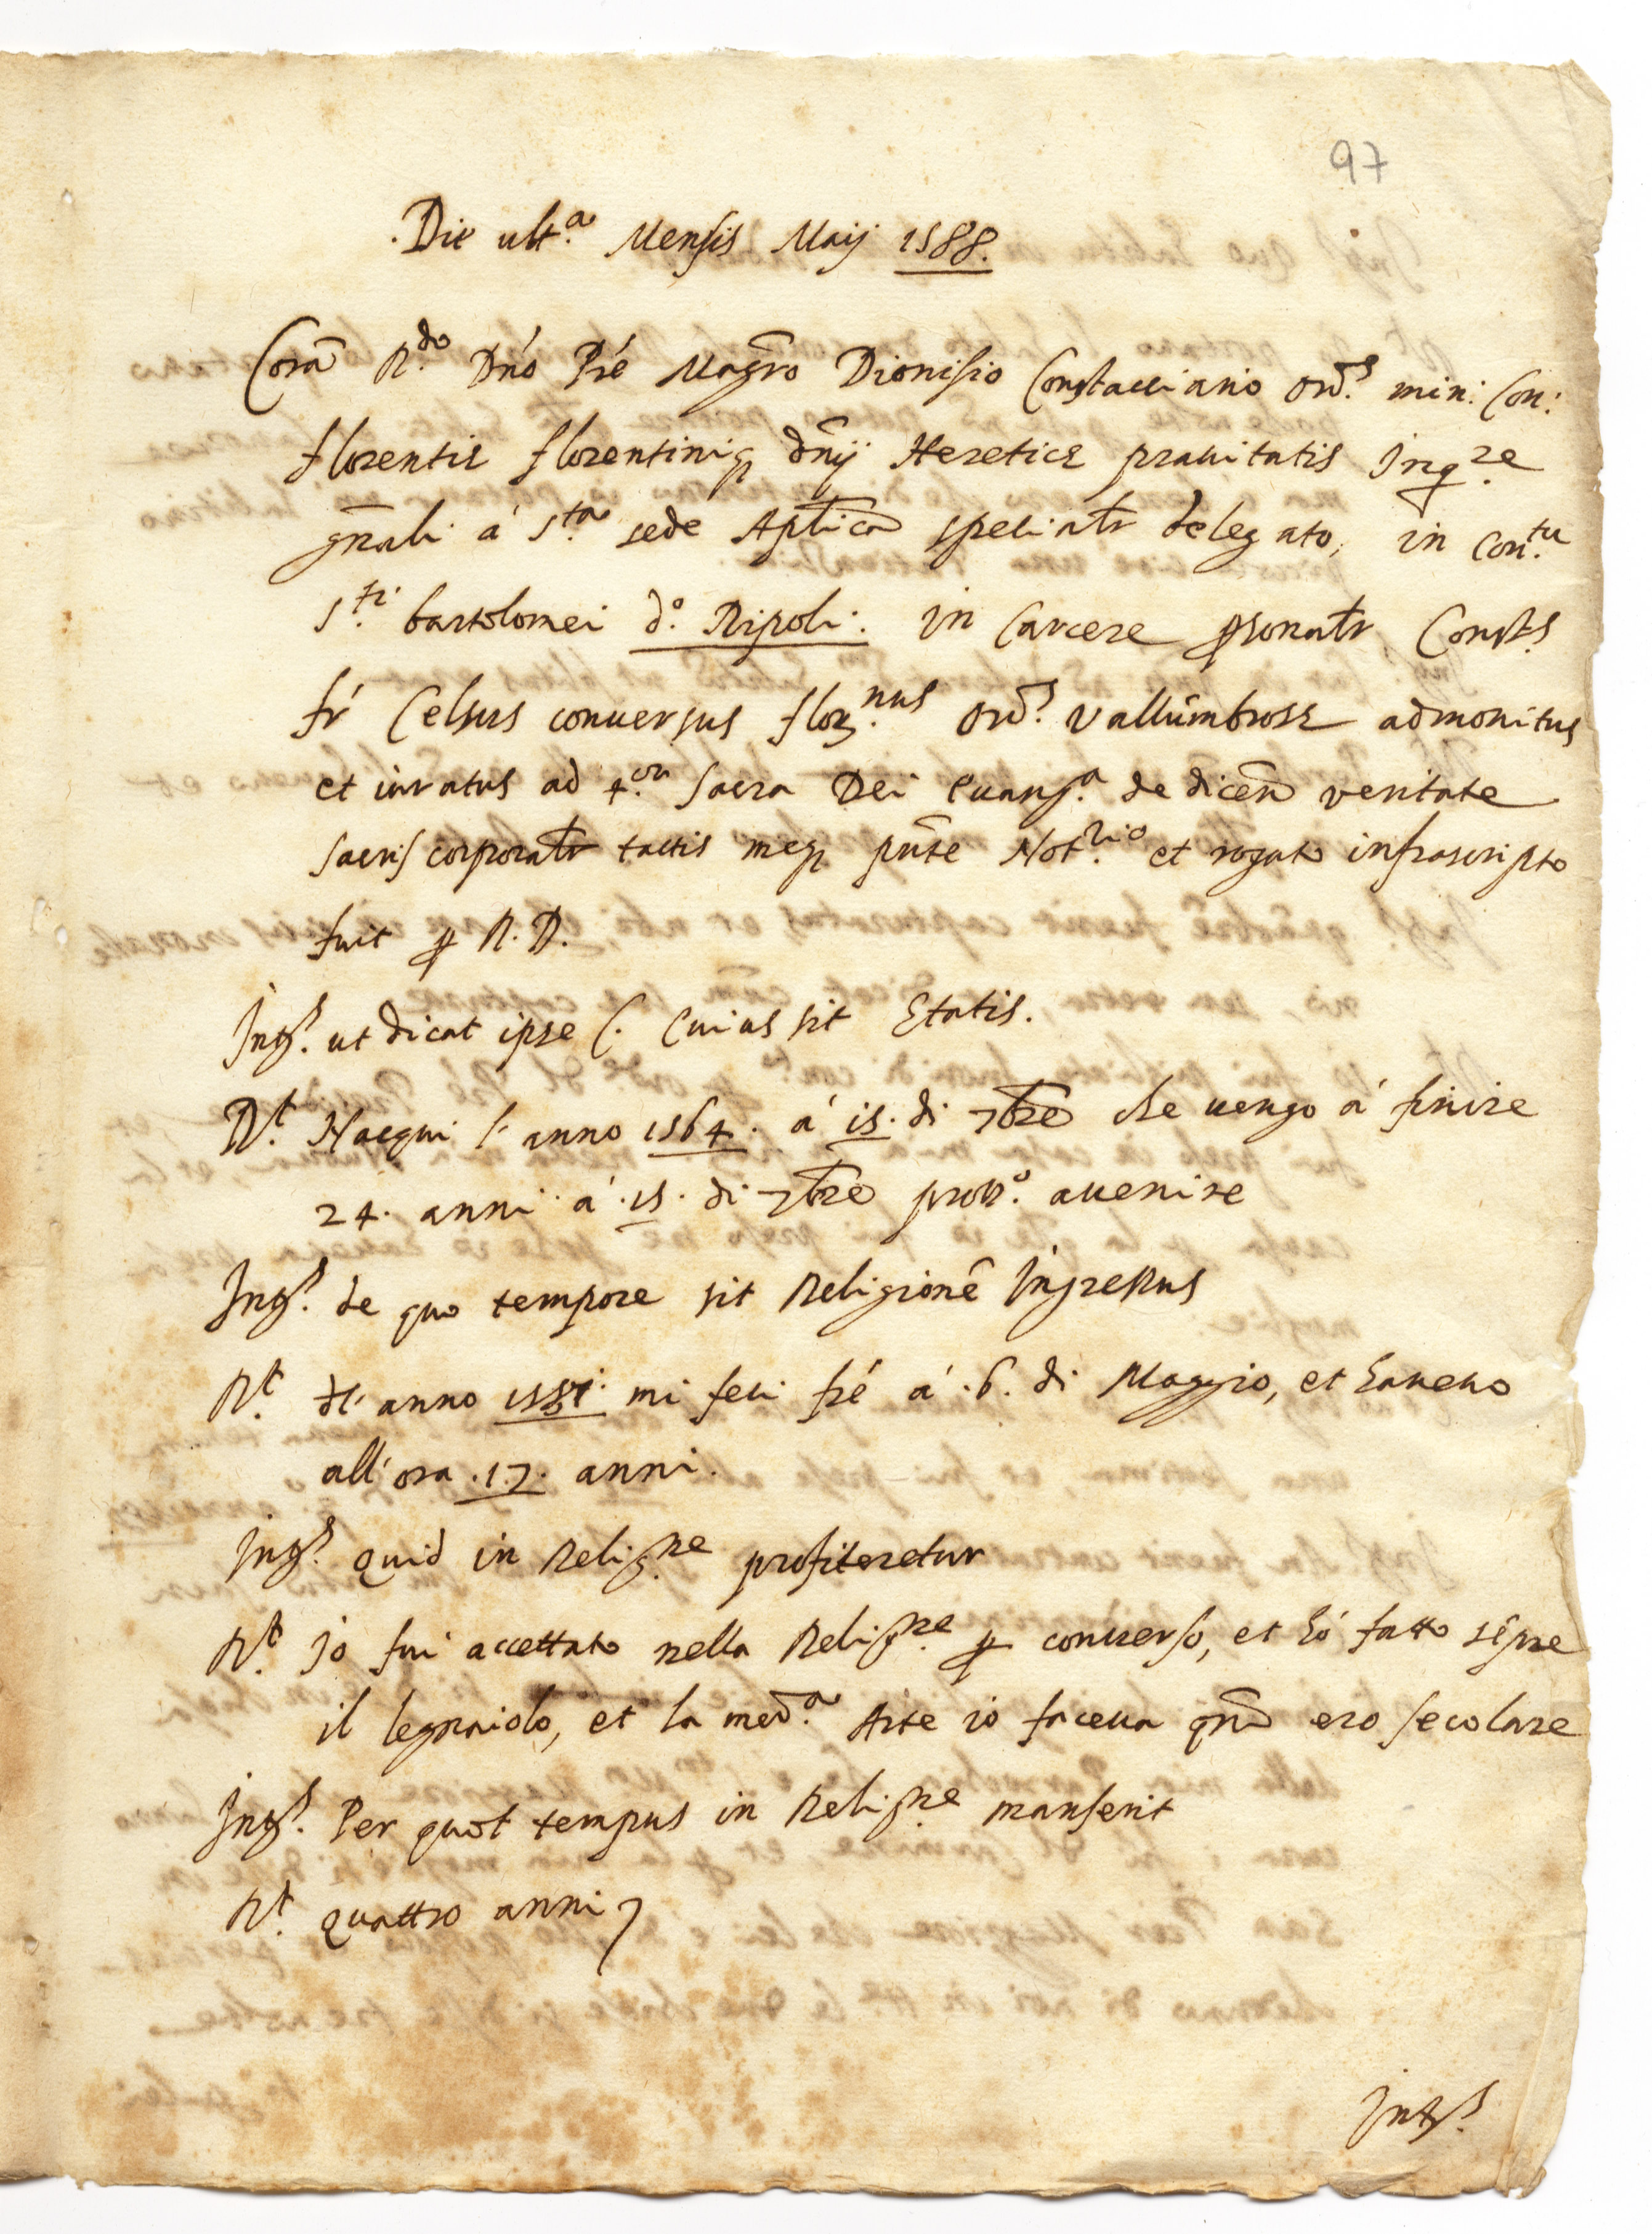 97
Die ult.a Mensis Maij 1588.
Corā R.do Dńo Pré Magr̄o Dionisio Constacciario Ord.s min: Con:
florentie florentiniq dn̄ij Heretice prauitatis Inq.re
gn̄ali á S.ta sede Apl̄ica specialr̄ delegato, in Con.tu
S.ti bartolomei d.o Ripoli: in Carcere ꝑsonalr̄ Const.s
fr̄ Celsus conuersus flor.nus Ord.s vallumbrose admonitus
et iuratus ad 4.or sacra Dei euang.a de dicen̄ veritate
sacris corporalr̄ tactis meq pn̄te Not.rio et rogato infrascripto
fuit ꝑ R. D.
Intg.s ut dicat ipse C. Cuius sit Etatis.
R.t Nacqui l'anno 1564. á 15. di 7br̄e che uengo á finire
24. anni á .15. di 7br̄e pross.o auenire
Intg.s de quo tempore sit Religionē Ingressus
R.t dl' anno mi feci fré á .6. di Maggio, et haueuo
all'ora .17. anni.
Intg.s Quid in Relig.ne profiteretur
R.t Jo fui accettato nella Relig.ne ꝑ conuerso, et hó fatto sēpre
il legnaiolo, et la med.a Arte io faceua qn̄ ero secolare
Intg.s Per quot tempus in Relig.ne manserit
R.t Quattro anni
Intg.s